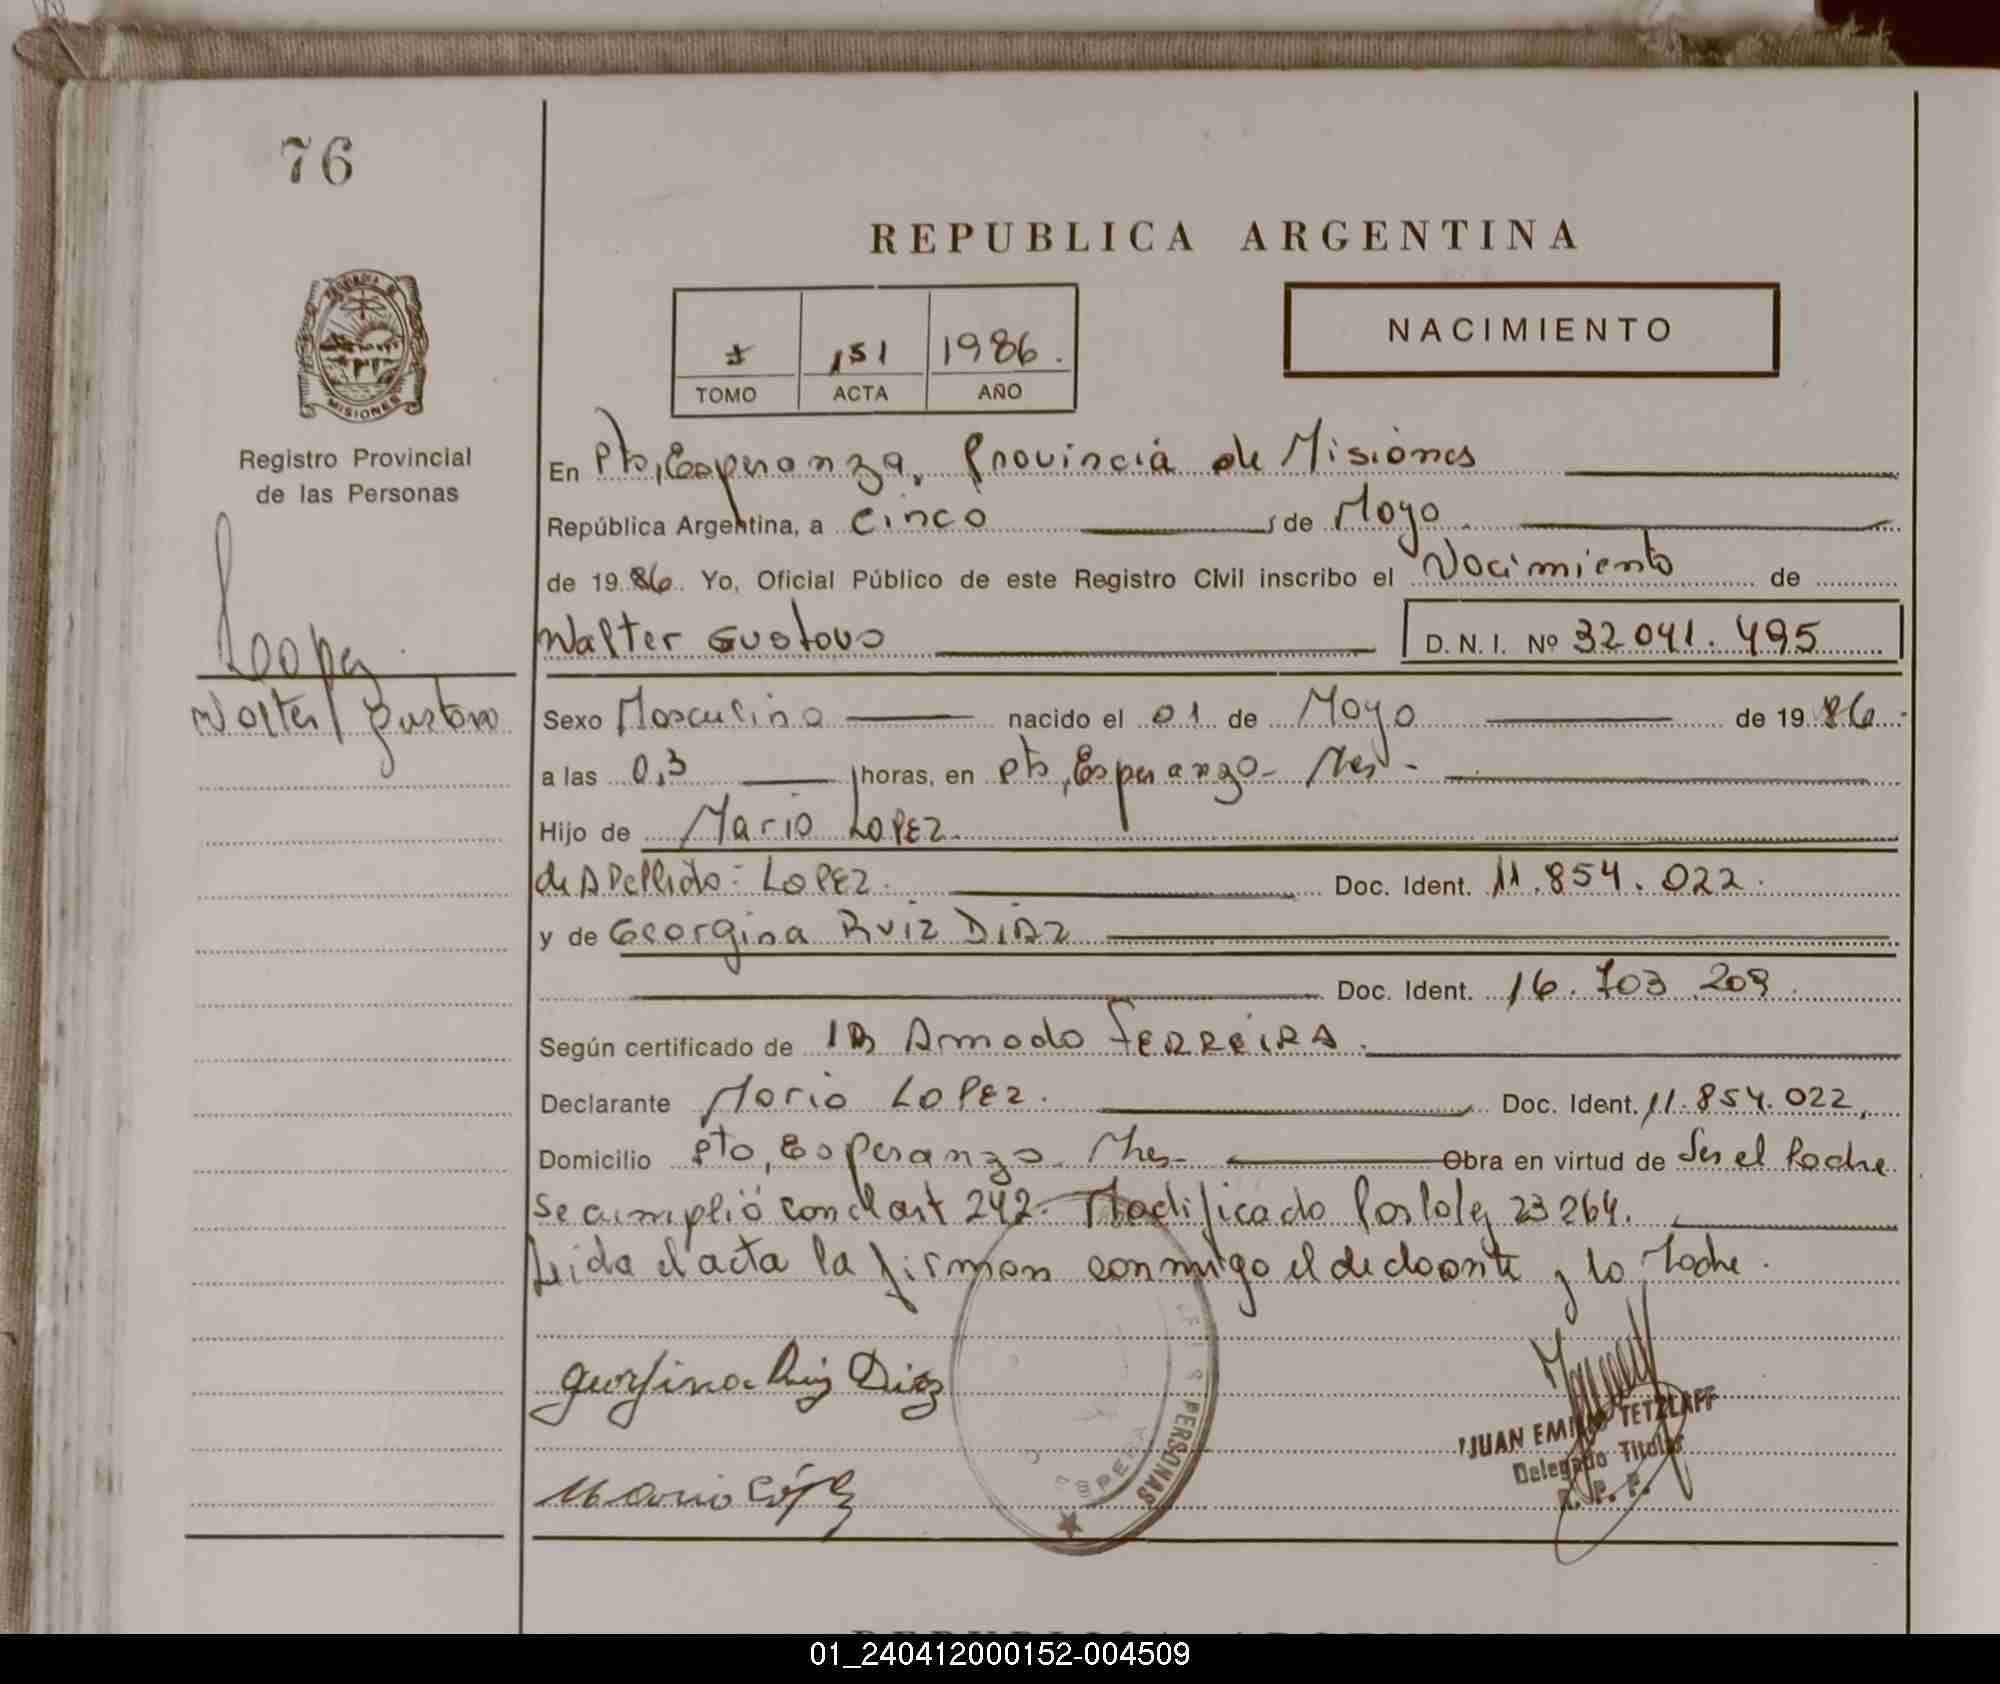 76
REPUBLICA ARGENTINA
NACIMIENTO
151 1986.
TOMO ACTA AÑO
MISIONES
Registro Provincial
de las Personas
Lopez
Walter Gustavo
En Pto, Esperanza, Provincia de Misiones
República Argentina, a cinco de Mayo
de 1986. Yo, Oficial Público de este Registro Civil inscribo el Nacimiento de
Walter Gustavo D.N.I. Nº 32 041. 495
Sexo Masculino nacido el 01 de Mayo de 1986.
a las 0,3 horas, en Pto, Esperanza- Mnes-
Hijo de Mario LOPEZ.
de Apellido: LOPEZ. Doc. Ident. 11.854.022.
y de Georgina RUIZ DIAZ
Doc. Ident. 16.703.209.
Según certificado de Amado FERREIRA.
Declarante Mario LOPEZ. Doc. Ident. 11.854.022,
Domicilio Pto, Esperanza. Mnes- Obra en virtud de Ser el Padre
Se cumplió con el art 242. Modificado Por la ley 23264.
Leida el acta la firman conmigo el declarante y la Madre.
Georgina Ruiz Diaz
PERSONAS
JUAN EMILIO TETZLAFF
Delegado Titular
R. P. P.
Mario López
01_240412000152-004509